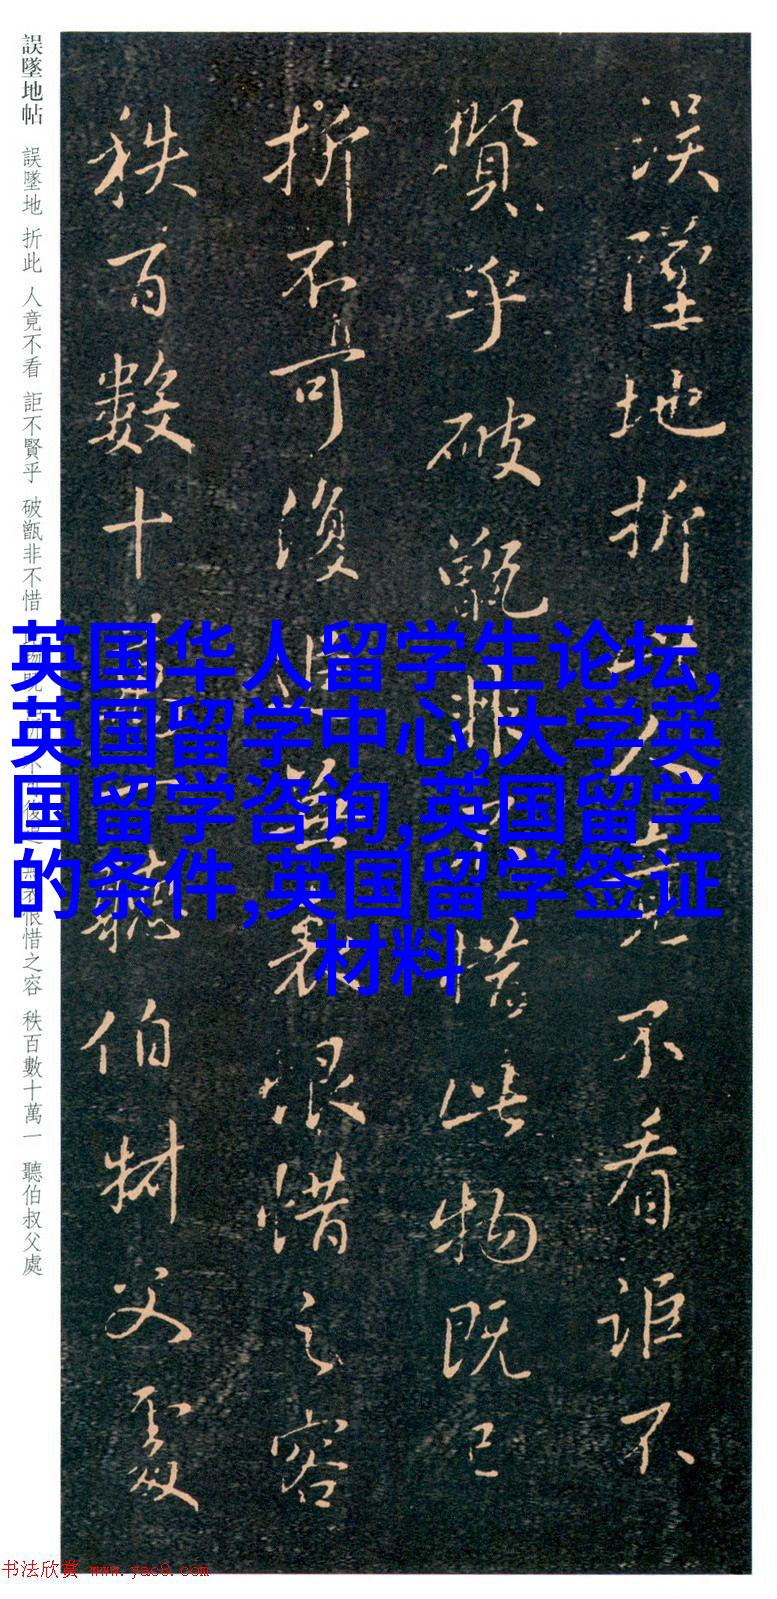 誤墜地折此人竟不看詎不
賢乎破甑非不惜此物既已
折不可復追無恨惜之容
秩百數十萬一聽伯叔父處
誤墜地帖 誤墜地 折此 人竟不看 詎不賢乎 破甑非不惜 恨惜之容 秩百數十萬一 聽伯叔父處
英国华人留学生论坛,
英国留学中心,大学英
国留学咨询,英国留学
的条件,英国留学签证
材料
书法欣赏 www.yac8.com